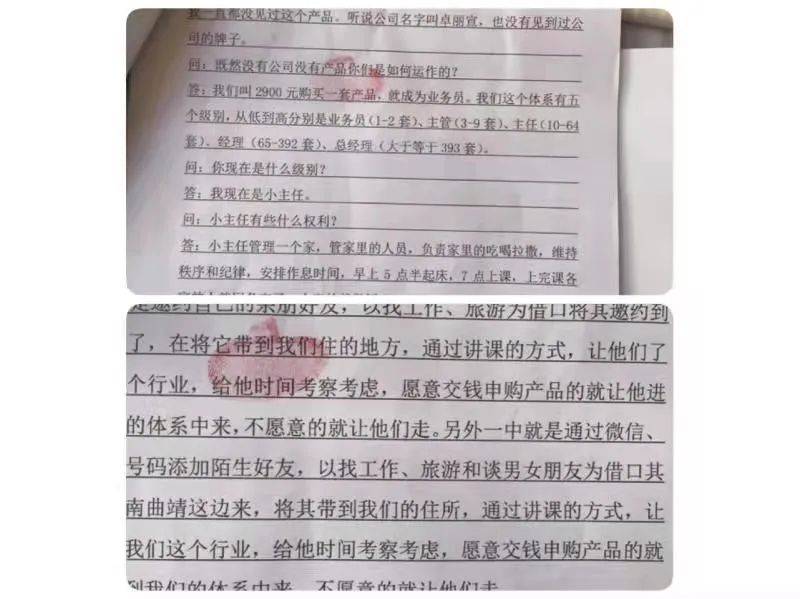 我一直都没见过这个产品。听说公司名字叫卓丽宣，也没有见到过公
司的牌子。
问：既然没有公司没有产品你们是如何运作的？
答：我们叫 2900 元购买一套产品，就成为业务员。我们这个体系有五
个级别，从低到高分别是业务员(1-2 套)、主管(3-9 套)、主任(10-64
套)、经理（65-392 套)、总经理（大于等于 393 套）。
问：你现在是什么级别？
答：我现在是小主任。
问：小主任有些什么权利？
答：小主任管理一个家，管家里的人员，负责家里的吃喝拉撒，维持
秩序和纪律，安排作息时间，早上 5 点半起床，7 点上课，上完课各
是邀约自己的亲朋好友，以找工作、旅游为借口将其邀约到
了，在将它带到我们住的地方，通过讲课的方式，让他们了
个行业，给他时间考察考虑，愿意交钱申购产品的就让他进
的体系中来，不愿意的就让他们走。另外一中就是通过微信、
号码添加陌生好友，以找工作、旅游和谈男女朋友为借口其
南曲靖这边来，将其带到我们的住所，通过讲课的方式，让
我们这个行业，给他时间考察考虑，愿意交钱申购产品的就
到我们的体系中来，不愿意的就让他们走